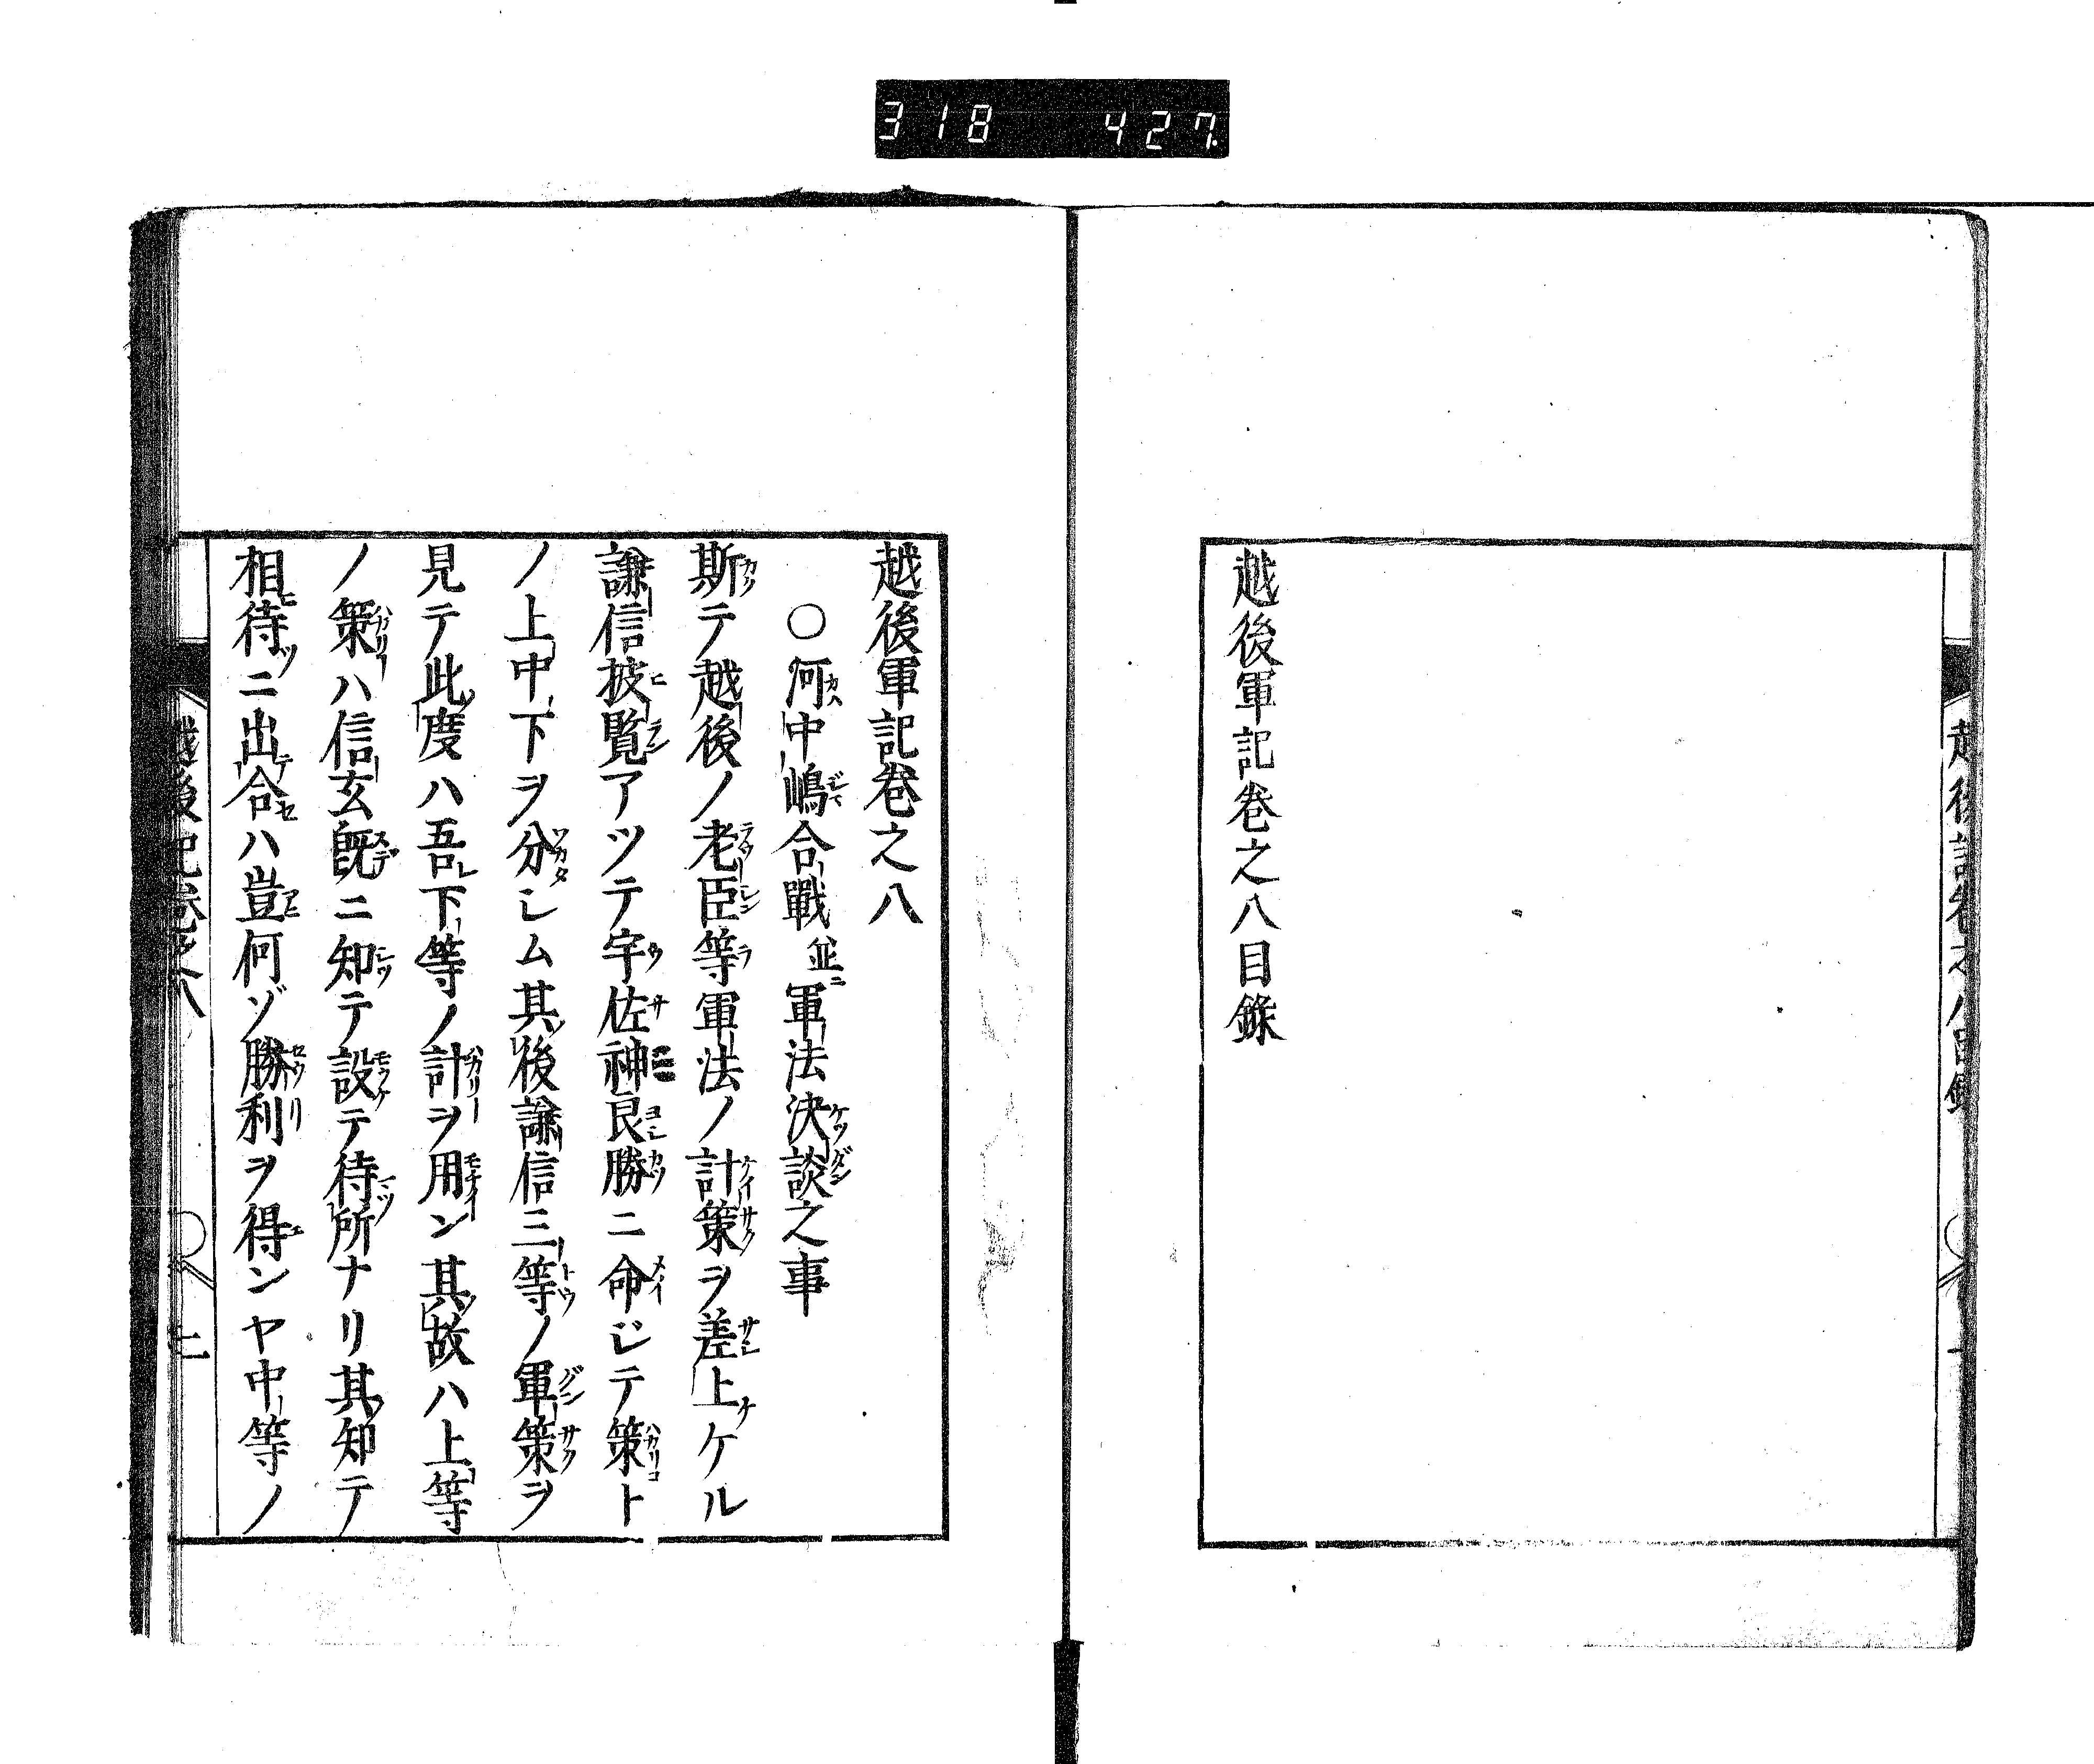 318 427
越後軍記卷之八目錄
越後軍記卷之八
○河中嶋合戰並ニ軍法決談之事
斯テ越後ノ老臣等軍法ノ計策ヲ差上ケル
謙信披覧アツテ宇佐神良勝ニ命ジテ策ト
ノ上中下ヲ分シム其後謙信三等ノ軍策ヲ
見テ此度ハ吾下等ノ計ヲ用ン其故ハ上等
ノ策ハ信玄既ニ知テ設テ待所ナリ其知テ
相待ニ出合ハ豈何ゾ勝利ヲ得ンヤ中等ノ
越後記卷之八